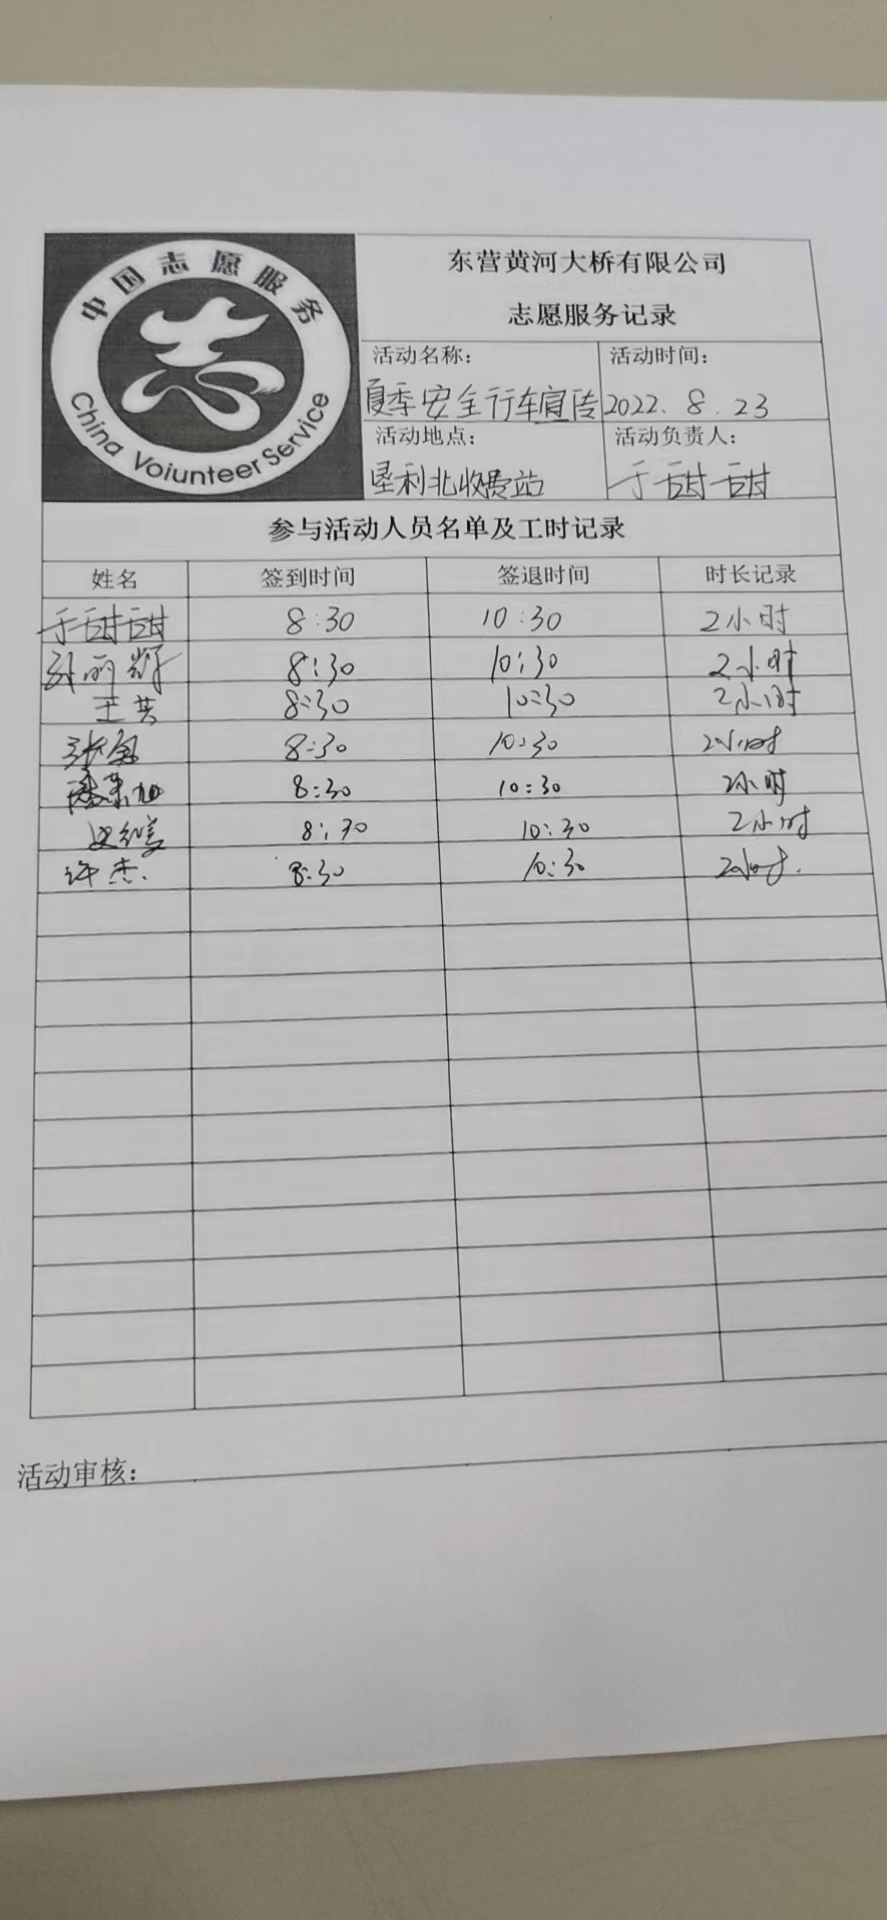 中国志愿服务
China Voiunteer Service
东营黄河大桥有限公司
志愿服务记录
活动名称： 活动时间：
夏季安全行车宣传 2022.8.23
活动地点： 活动负责人：
垦利北收费站 于甜甜
参与活动人员名单及工时记录
姓名 签到时间 签退时间 时长记录
于甜甜 8:30 10:30 2小时
8:30 10:30 2小时
王芸 8:30 10:30 2小时
张 8:30 10:30 2小时
8:30 10:30 2小时
8:30 10:30 2小时
许杰. 8:30 10:30 2小时.
活动审核：